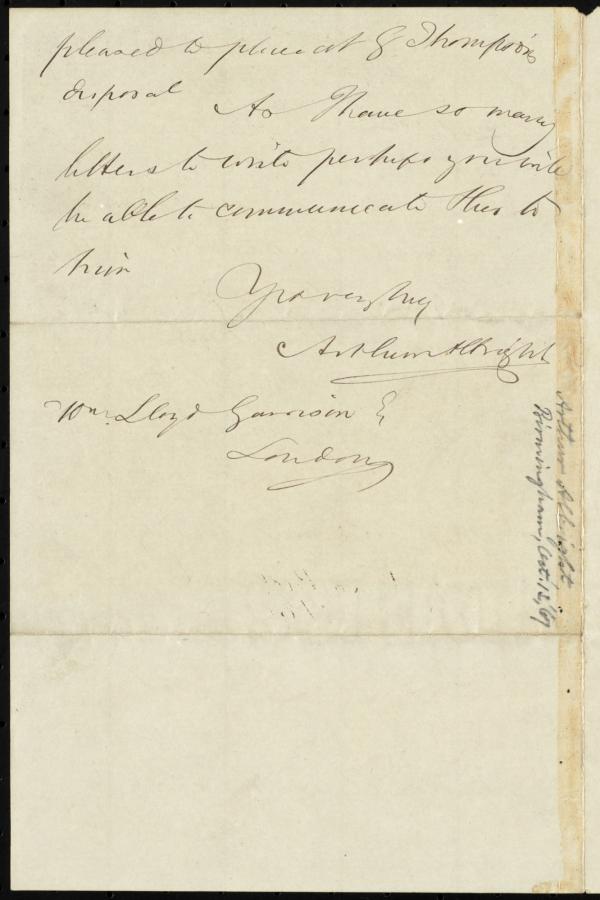 pleased to place at G Thompson's
disposal As I have so many
letters to write perhaps you will
be able to communicate this to
him
Yrs very truly
Arthur Albright
Wm. Lloyd Garrison E
London
Arthur Albright
Birmingham, Oct. 12, '67